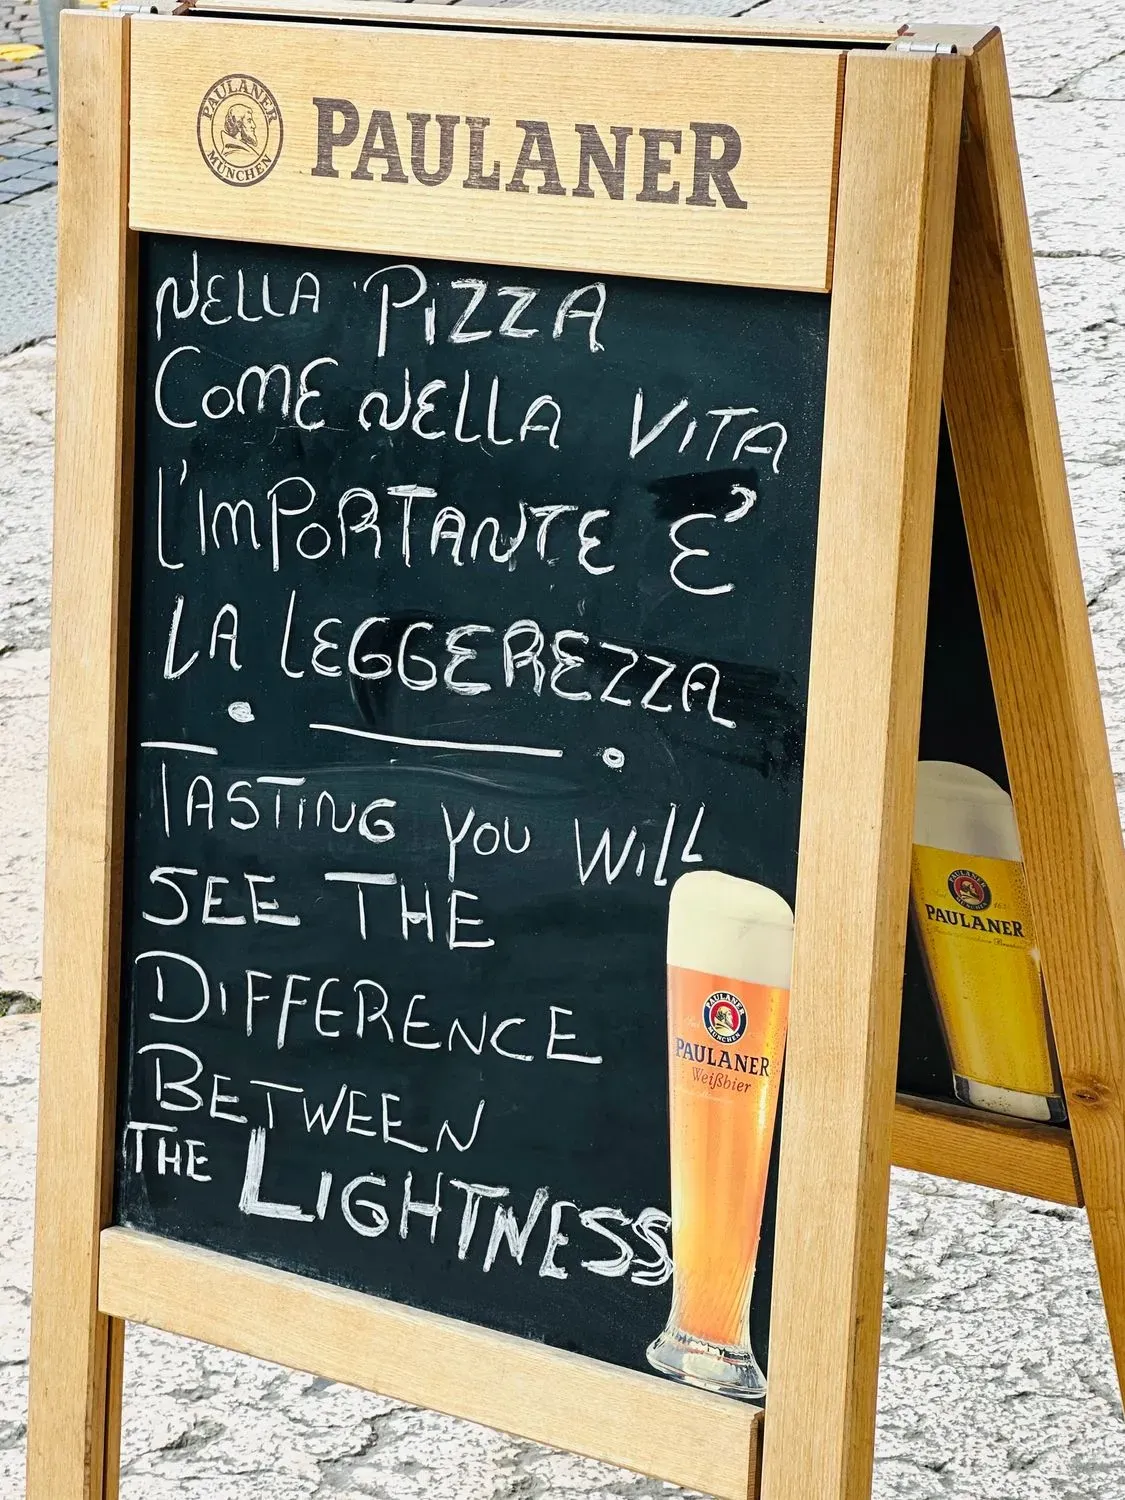 PAULANER
MÜNCHEN
PAULANER
NELLA PiZZA
COME NELLA ViTA
L'IMPORTANTE E'
LA LEGGEREZZA
TASTiNG YOU WiLL
SEE THE
DiFFERENCE
BETWEEN
THE LIGHTNESS
PAULANER
MÜNCHEN
PAULANER
Weißbier
PAULANER
MÜNCHEN
PAULANER